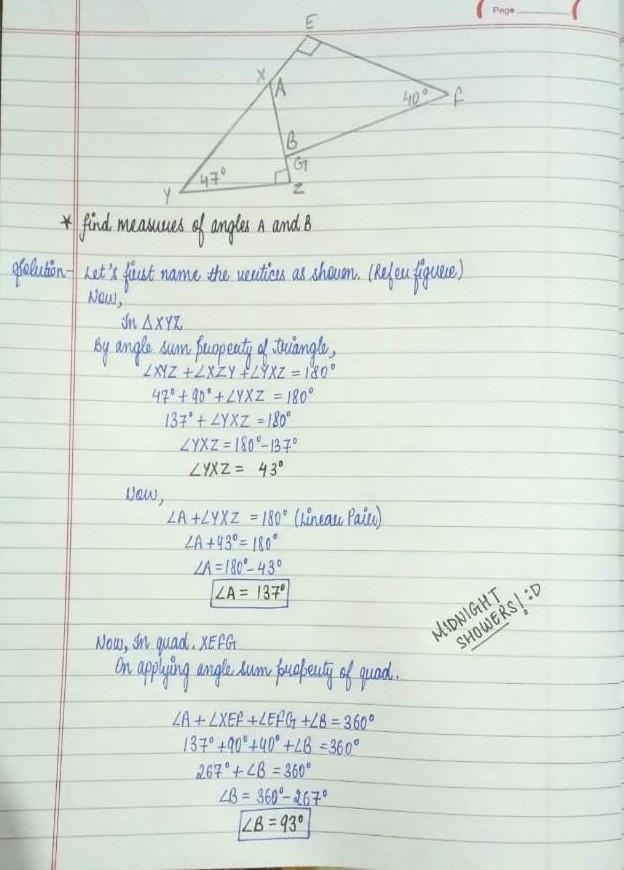 Page
E
X
A
40° F
B
G
47°
Y
Z
* find measures of angles A and B
Solution- Let's first name the vertices as shown. (Refer figure.)
Now,
In △XYZ
By angle sum property of triangle,
∠XYZ + ∠XZY + ∠YXZ = 180°
47° + 90° + ∠YXZ = 180°
137° + ∠YXZ = 180°
∠YXZ = 180° - 137°
∠YXZ = 43°
Now,
∠A + ∠YXZ = 180° (Linear Pair)
∠A + 43° = 180°
∠A = 180° - 43°
∠A = 137°
MIDNIGHT
SHOWERS! :D
Now, In quad. XEFG
On applying angle sum property of quad.
∠A + ∠XEF + ∠EFG + ∠B = 360°
137° + 90° + 40° + ∠B = 360°
267° + ∠B = 360°
∠B = 360° - 267°
∠B = 93°